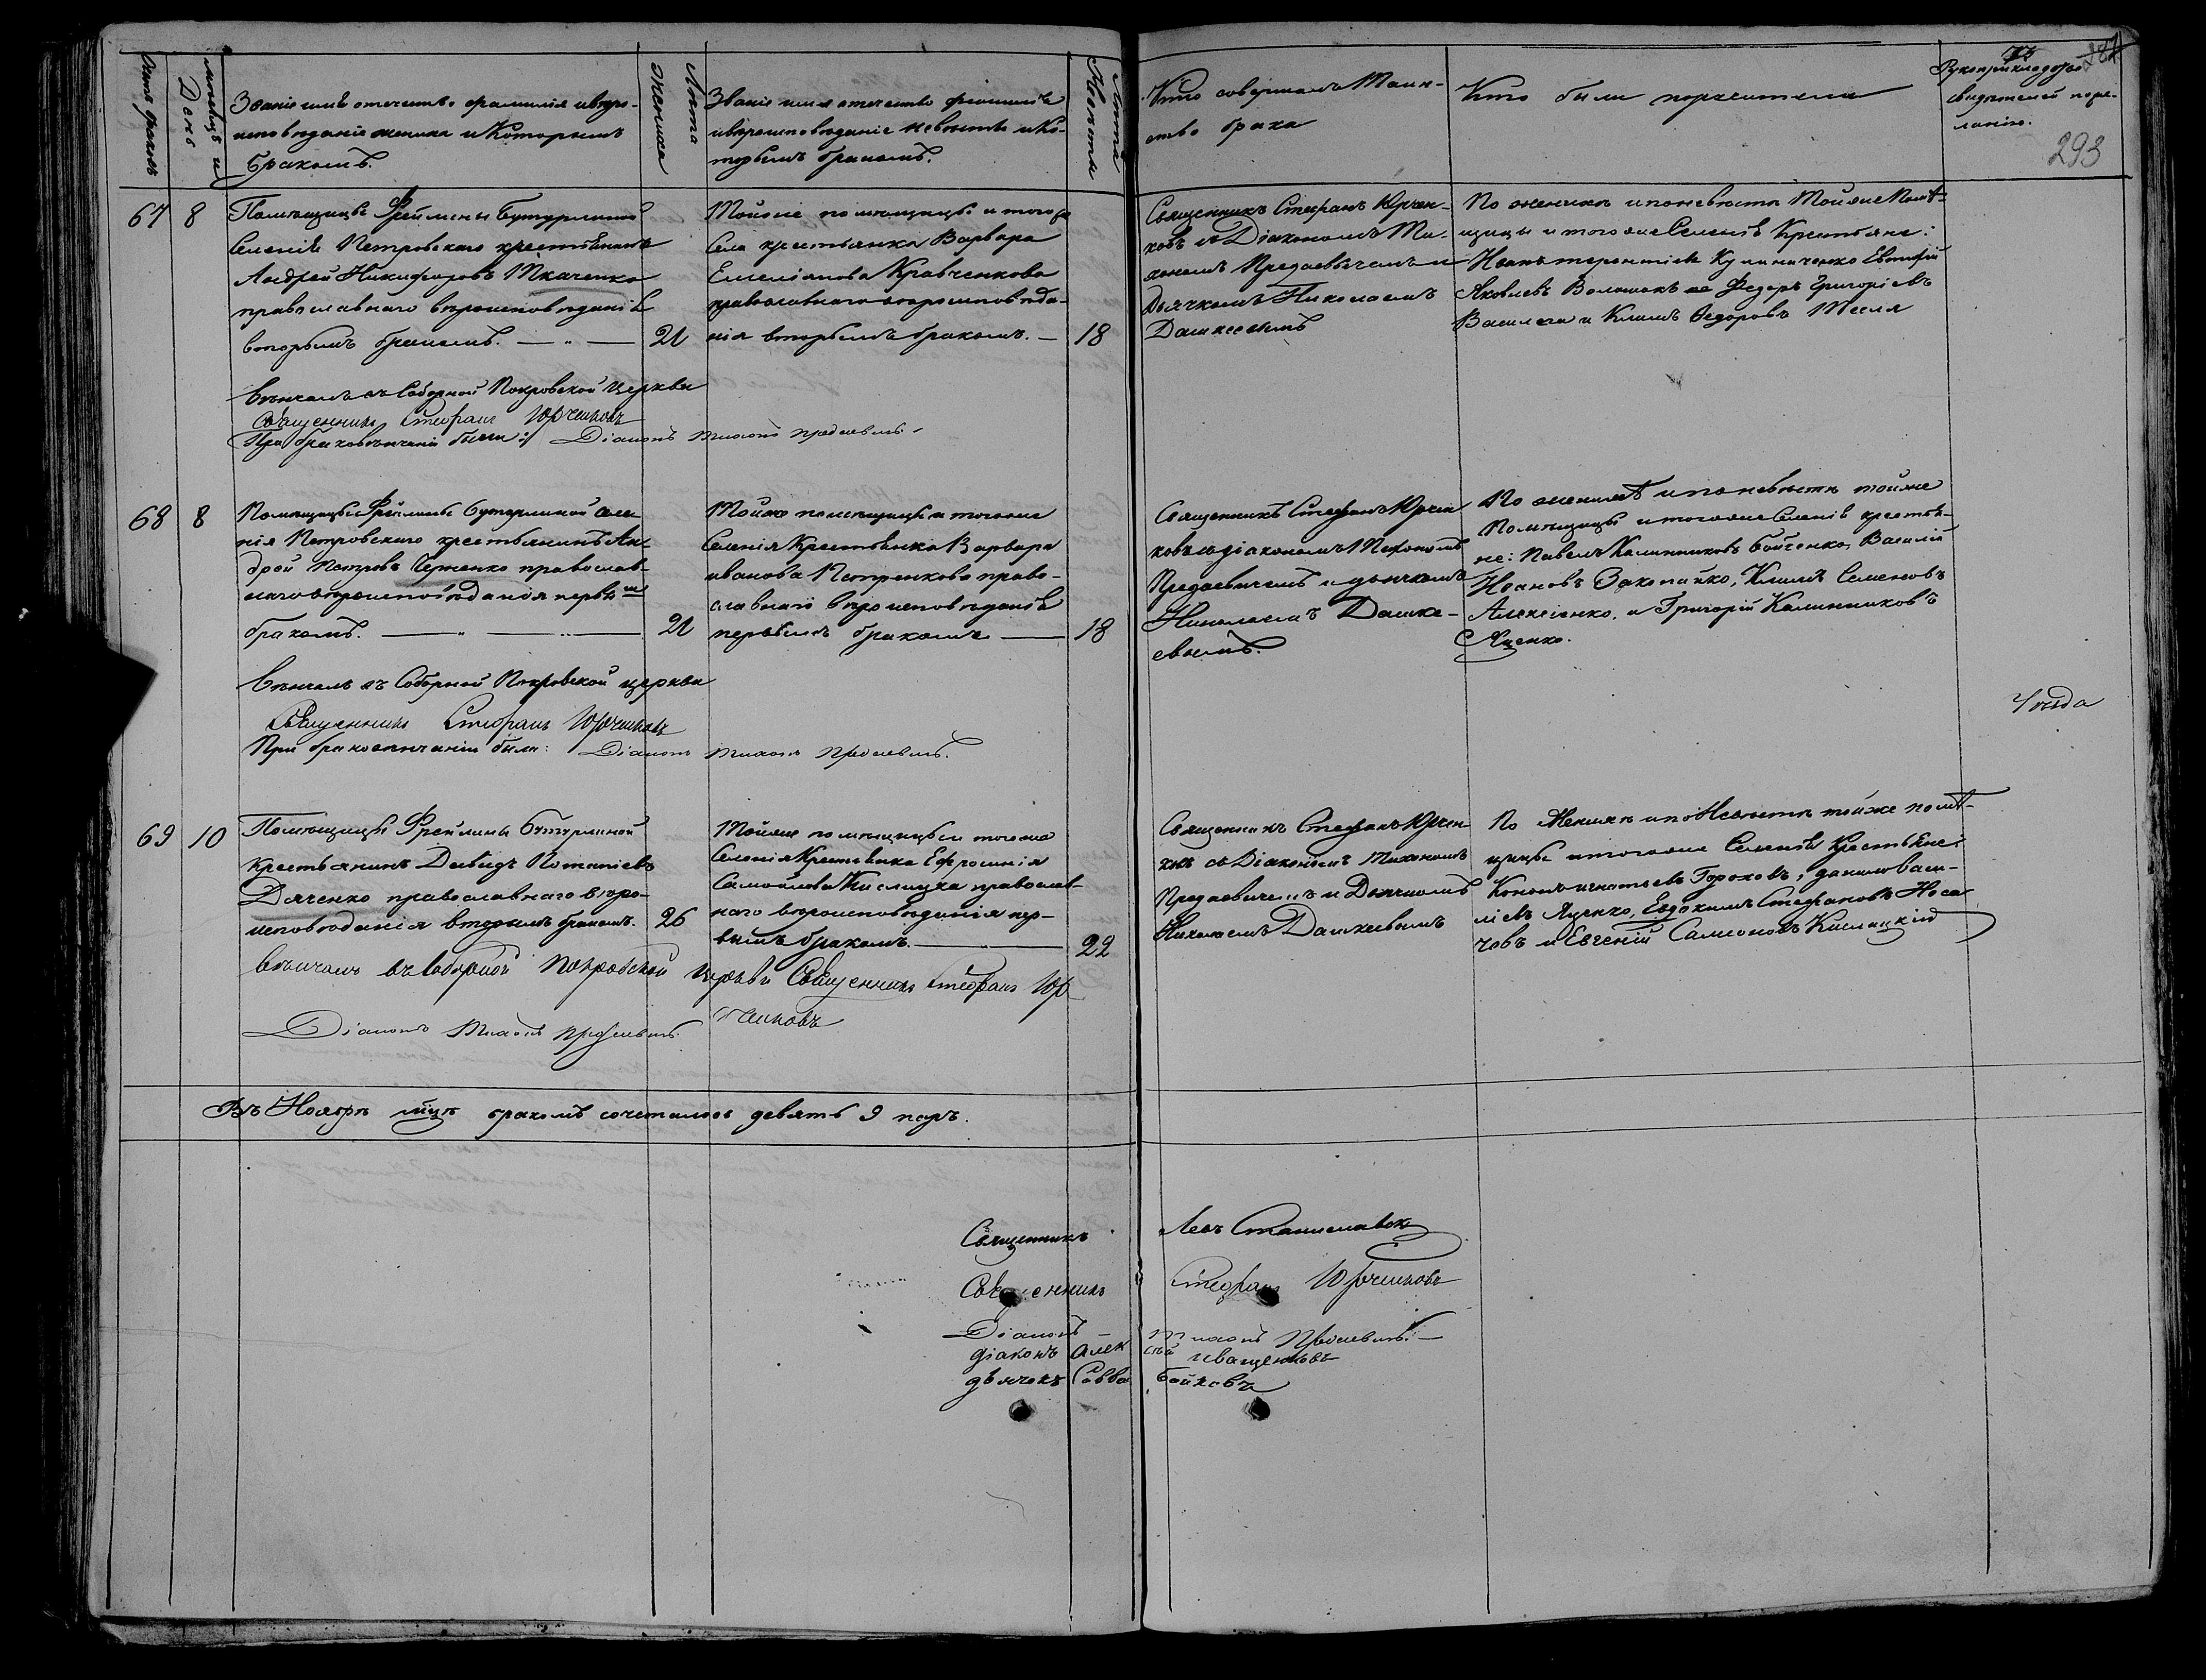 Счетъ браковъ
мѣсяцъ и
День
Званіе имя отечество фамилія и вѣро-
исповѣданіе жениха и Которымъ
бракомъ.
Лѣта
жениха
Званіе имя отечество фамилія
и вѣроисповѣданіе невѣсты и Ко-
торымъ бракомъ.
Лѣта
Невѣсты
Кто совершалъ Таин-
ство брака
Кто были поручители
Рукоприкладство
свидѣтелей по же-
ланію.
293
67
8
Помѣщицы Фрейлины Бутурлиной
Селенія Петровскаго крестьянинъ
Андрей Никифоровъ Ткаченко
православнаго вѣроисповѣданія
вторымъ бракомъ.
21
Тойже помѣщицы и тогоже
Села крестьянка Варвара
Емеліянова Кравченкова
православнаго вѣроисповѣда-
нія вторымъ бракомъ.
18
Священникъ Стефанъ Юрчен-
ковъ съ Діакономъ Ти-
хономъ Предаевичемъ и
Дьячкомъ Николаемъ
Дашкеевымъ
По женихѣ и по невѣстѣ Тойже Помѣ-
щицы и тогоже Селенія Крестьяне:
Иванъ Терентіевъ Евтифій
Яковлевъ Волошинъ Федоръ Григоріевъ
Василега и Климъ Федоровъ Тесля
Вѣнчалъ въ Соборной Покровской Церкви
Священникъ Стефанъ Юрченковъ
При браковѣнчаніи были: Діаконъ Тихонъ Предаевичъ
68
8
Помѣщицы Фрейлины Бутурлиной Селе-
нія Петровскаго крестьянинъ Ан-
дрей Петровъ православ-
наго вѣроисповѣданія первымъ
бракомъ.
21
Тойже помѣщицы и тогоже
Селенія Крестьянка Варвара
Иванова Петренкова право-
славнаго вѣроисповѣданія
первымъ бракомъ
18
Священникъ Стефанъ Юрчен
ковъ съ діакономъ Тихономъ
Предаевичемъ и дьячкомъ
Николаемъ Дашке-
евымъ.
По женихѣ и по невѣстѣ тойже
Помѣщицы и тогоже Селенія крестья-
не: Павелъ Калинниковъ Бойченко, Василій
Ивановъ Закопайко, Климъ Семеновъ
Алексіенко, и Григорій Калинниковъ
Яценко.
Вѣнчалъ въ Соборной Покровской церкви
Священникъ Стефанъ Юрченковъ
При браковѣнчаніи были: Діаконъ Тихонъ Предаевичъ.
69
10
Помѣщицы Фрейлины Бутурлиной
крестьянинъ Давидъ Потапіевъ
Дяченко православнаго вѣро-
исповѣданія вторымъ бракомъ.
26
Тойже помѣщицы и тогоже
Селенія Крестьянка Ефросинія
Самойлова Кислицка православ-
наго вѣроисповѣданія пер-
вымъ бракомъ.
22
Священникъ Стефанъ Юрчен-
ковъ съ Діакономъ Тихономъ
Предаевичемъ и Дьячкомъ
Николаемъ Дашкеевымъ
По Женихѣ и по Невѣстѣ тойже помѣ-
щицы и тогоже Селенія Крестьяне:
Кононъ Игнатьевъ Гороховъ, Данило Васи-
ліевъ Яценко, Евдокимъ Стефановъ Носа
човъ и Евгеній Самсоновъ Кислицкій
Вѣнчалъ въ Соборной Покровской Церкви Священникъ Стефанъ Юр
ченковъ
Діаконъ Тихонъ Предаевичъ.
Въ Ноябрѣ мцѣ бракомъ сочеталось девять 9 паръ.
Священникъ Левъ Станиславск
Священникъ Стефанъ Юрченковъ
Діаконъ Тихонъ Предаевичъ.
діаконъ Алексѣй Иващенковъ
дьячокъ Савва Бойковъ